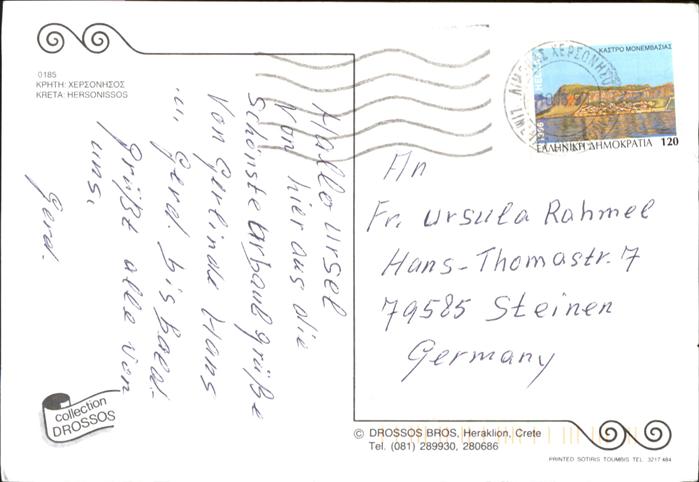 0185
ΚΡΗΤΗ: ΧΕΡΣΟΝΗΣΟΣ
KRETA: HERSONISSOS
Hallo Ursel
Von hier aus die
schönste Urlaubgrüße
Von Gerlinde Hans
u. Gerd. bis bald.
grüßt alle von
uns.
Gerd.
ΚΑΣΤΡΟ ΜΟΝΕΜΒΑΣΙΑΣ
ΕΛΛΗΝΙΚΗ ΔΗΜΟΚΡΑΤΙΑ 120
ΛΙΜΕΝΑΣ ΧΕΡΣΟΝΗΣΟΥ
An
Fr. Ursula Rahmel
Hans-Thomastr. 7
79585 Steinen
Germany
collection
DROSSOS
© DROSSOS BROS, Heraklion, Crete
Tel. (081) 289930, 280686
PRINTED SOTIRIS TOUMBIS TEL. 3217 484